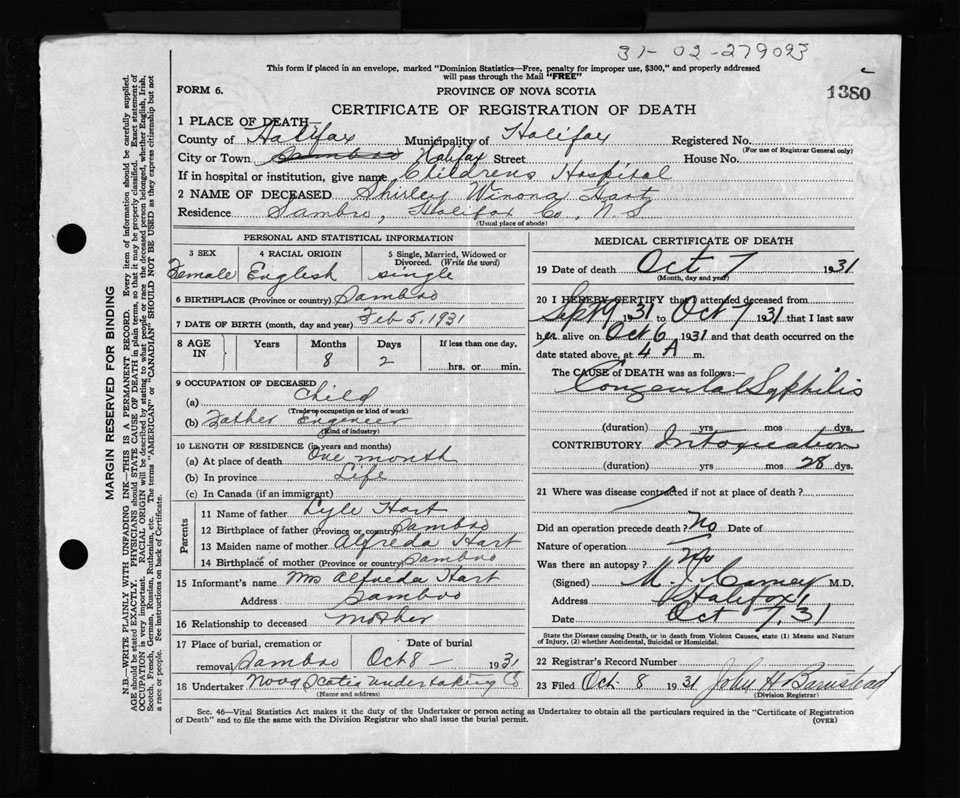 31-02-279093
This form if placed in an envelope, marked "Dominion Statistics—Free, penalty for improper use, $300," and properly addressed
will pass through the Mail "FREE"
FORM 6.
PROVINCE OF NOVA SCOTIA
1380
CERTIFICATE OF REGISTRATION OF DEATH
1 PLACE OF DEATH—
County of Halifax Municipality of Halifax Registered No.
(For use of Registrar General only)
City or Town Sambro Halifax Street House No.
If in hospital or institution, give name Childrens Hospital
2 NAME OF DECEASED Shirley Winona Hart
Residence Sambro, Halifax Co, N.S
(Usual place of abode)
PERSONAL AND STATISTICAL INFORMATION
3 SEX 4 RACIAL ORIGIN 5 Single, Married, Widowed or
Divorced. (Write the word)
Female English single
6 BIRTHPLACE (Province or country) Sambro
7 DATE OF BIRTH (month, day and year) Feb 5, 1931
8 AGE IN Years Months Days If less than one day,
8 2 hrs. or min.
9 OCCUPATION OF DECEASED
(a) Child
(Trade or occupation or kind of work)
(b) Father Engineer
(Kind of industry)
10 LENGTH OF RESIDENCE (in years and months)
(a) At place of death One month
(b) In province Life
(c) In Canada (if an immigrant)
Parents
11 Name of father Lyle Hart
12 Birthplace of father (Province or country) Sambro
13 Maiden name of mother Alfreda Hart
14 Birthplace of mother (Province or country) Sambro
15 Informant's name Mrs Alfreda Hart
Address Sambro
16 Relationship to deceased mother
17 Place of burial, cremation or Date of burial
removal Sambro Oct 8 — 1931
18 Undertaker Nova Scotia Undertaking Co
(Name and address)
MEDICAL CERTIFICATE OF DEATH
19 Date of death Oct 7 1931
(Month, day and year)
20 I HEREBY CERTIFY that I attended deceased from
Sept 9 1931 to Oct 7 1931 that I last saw
her alive on Oct 6 1931 and that death occurred on the
date stated above, at 4 A m.
The CAUSE of DEATH was as follows:—
Congenital Syphilis
(duration) yrs mos dys.
CONTRIBUTORY Intoxication
(duration) yrs mos 28 dys.
21 Where was disease contracted if not at place of death?
Did an operation precede death? No Date of
Nature of operation
Was there an autopsy? No
(Signed) M. J. Carney M.D.
Address Halifax
Date Oct 7, 31
State the Disease causing Death, or in death from Violent Causes, state (1) Means and Nature
of Injury, (2) whether Accidental, Suicidal or Homicidal.
22 Registrar's Record Number
23 Filed Oct. 8 1931 John H Barnstead
(Division Registrar)
Sec. 46—Vital Statistics Act makes it the duty of the Undertaker or person acting as Undertaker to obtain all the particulars required in the "Certificate of Registration
of Death" and to file the same with the Division Registrar who shall issue the burial permit.
(OVER)
MARGIN RESERVED FOR BINDING
N.B.—WRITE PLAINLY WITH UNFADING INK—THIS IS A PERMANENT RECORD. Every item of information should be carefully supplied.
AGE should be stated EXACTLY. PHYSICIANS should STATE CAUSE OF DEATH in plain terms, so that it may be properly classified. Exact statement of
OCCUPATION is very important. RACIAL ORIGIN will be described by stating to what people or race the deceased person belonged, whether English, Irish,
Scotch, French, German, Russian, Ruthenian, etc. The terms "AMERICAN" or "CANADIAN" SHOULD NOT BE USED as they express citizenship but not
a race or people. See instructions on back of Certificate.